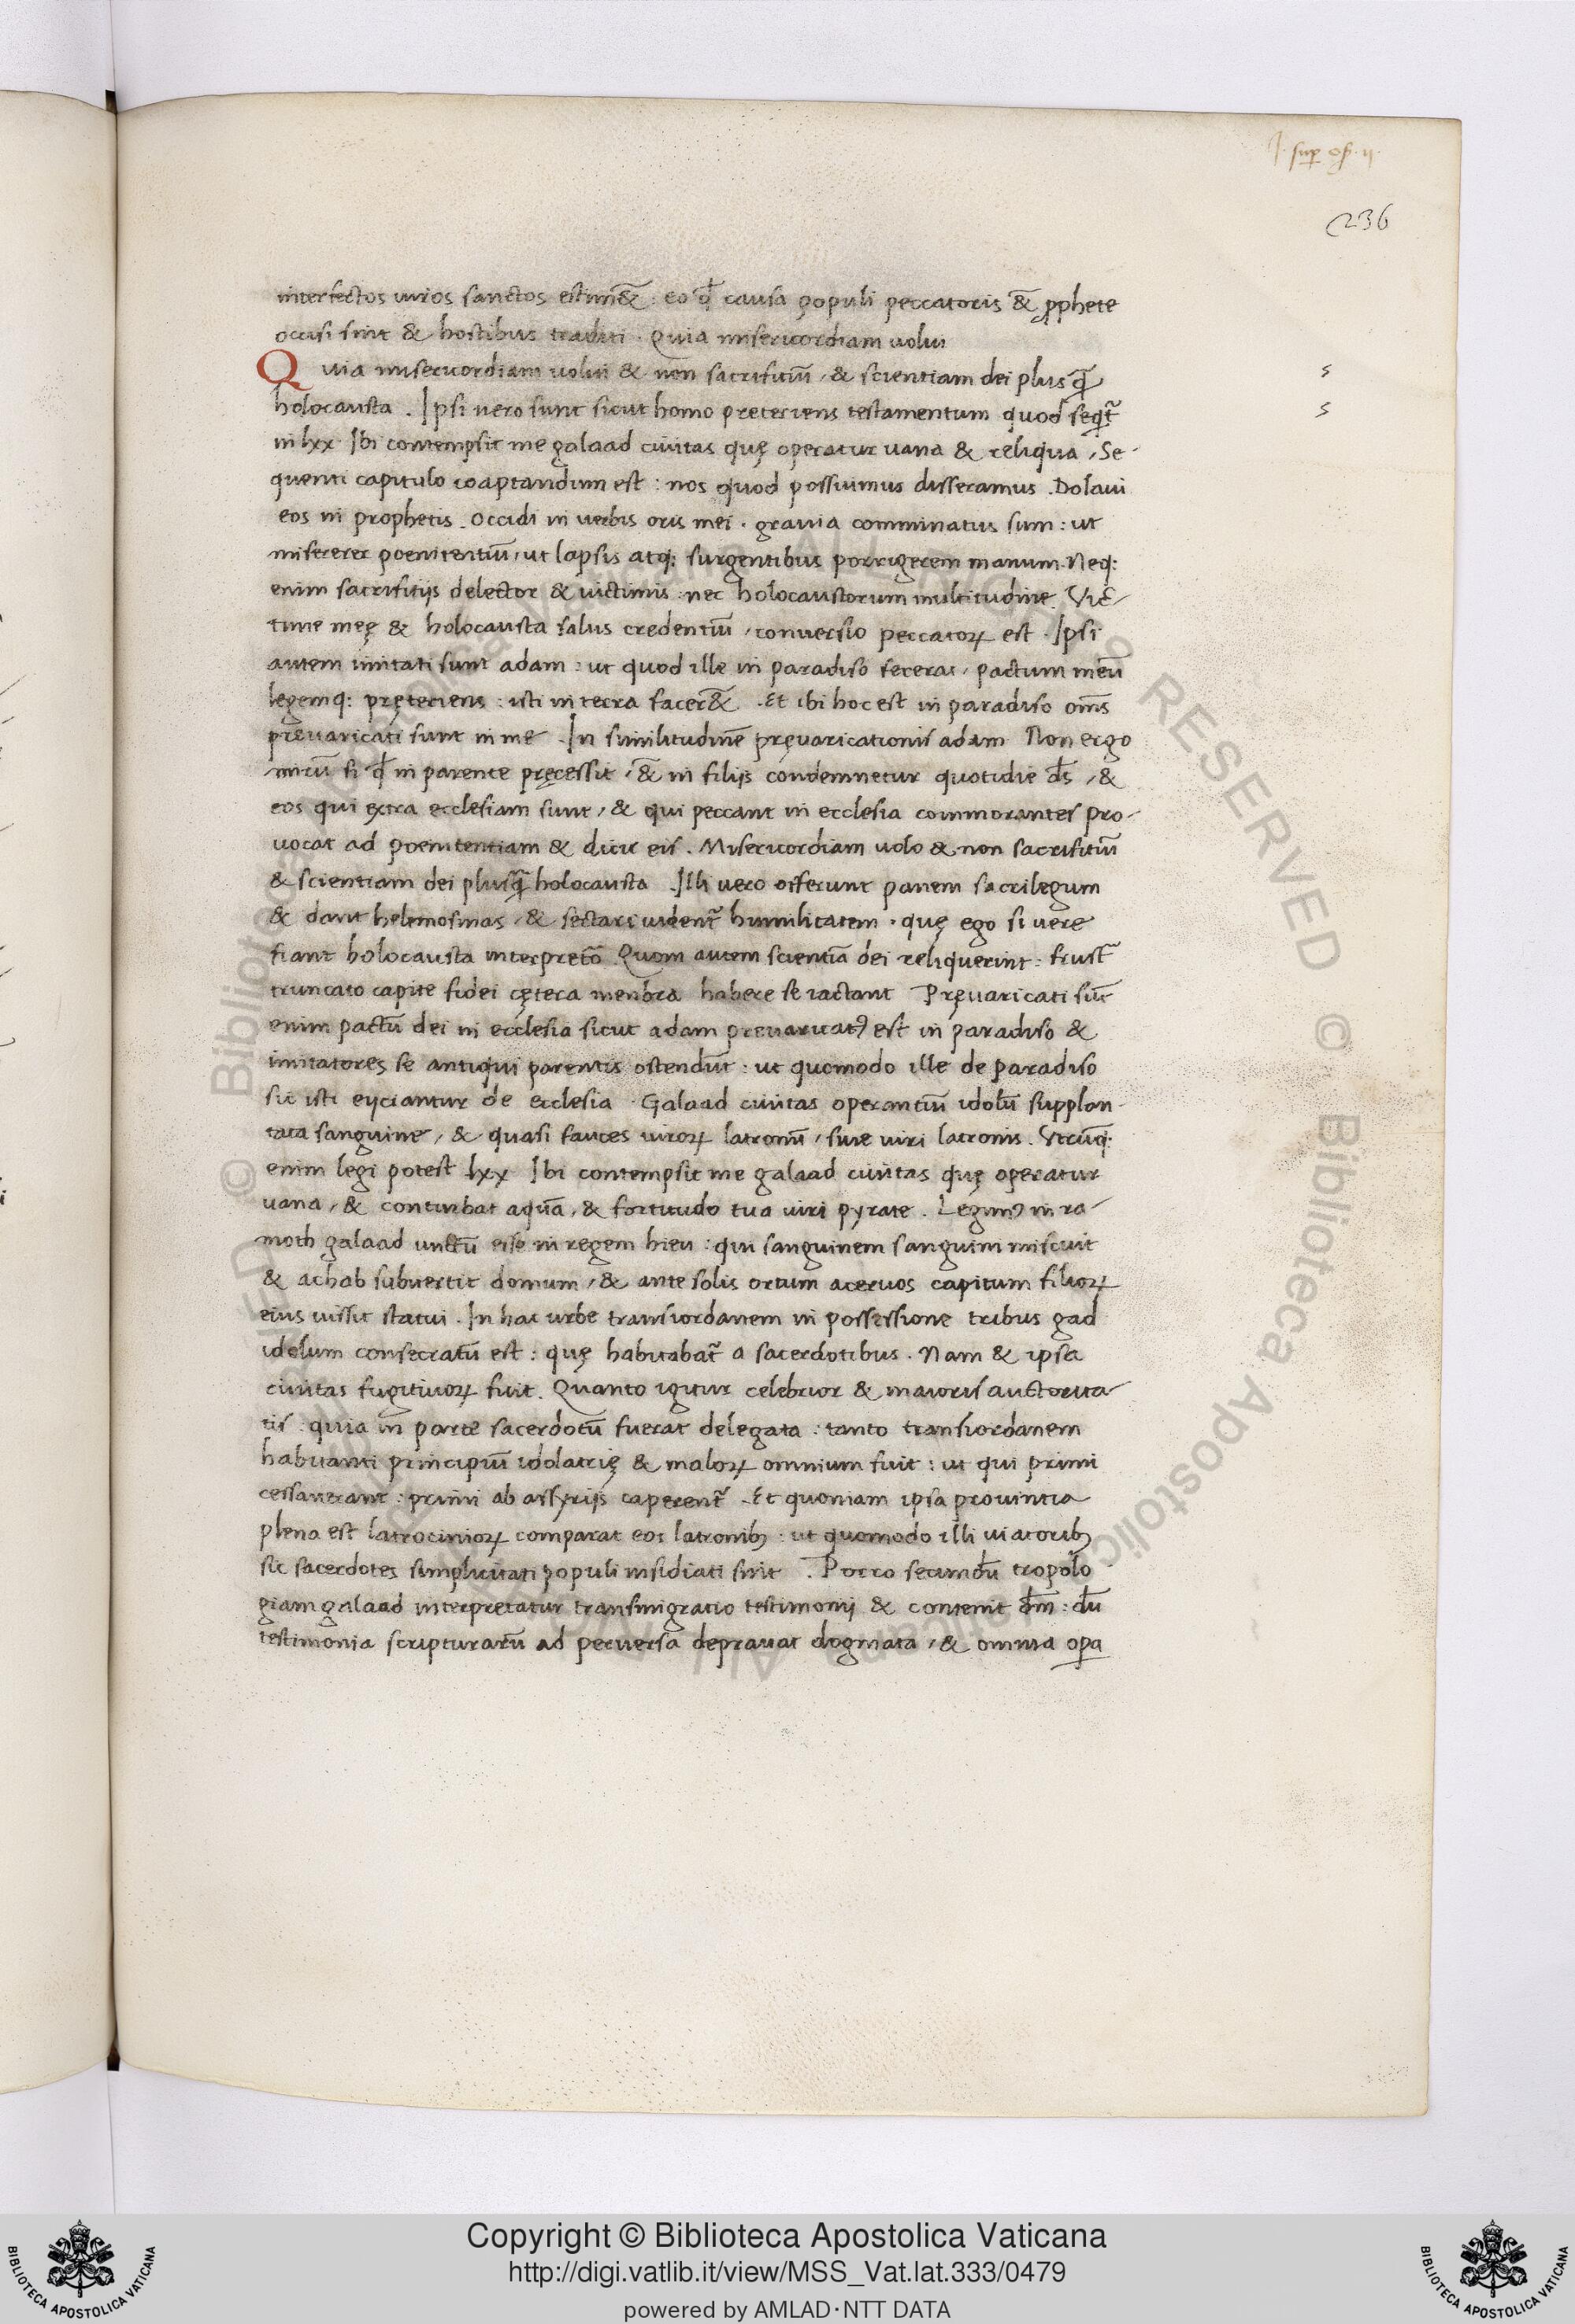 J. sup os. ij.
236
interfectos uiros sanctos estim&̄ : eo q̄d causa populi peccatoris &̄ pphete
occisi sint & hostibus traditi . Quia misericordiam uolui
Quia misericordiam uolui & non sacrifitiū , & scientiam dei plusq̄
holocausta . Ipsi uero sunt sicut homo preteriens testamentum quod seqt̄
in lxx Ibi contempsit me galaad ciuitas quę operatur uana & reliqua , Se-
quenti capitulo coaptandum est : nos quod possumus disseramus . Dolaui
eos in prophetis . Occidi in uerbis oris mei . grauia comminatus sum : ut
misererer poenitentiū , ut lapsis atq; surgentibus porrigerem manum . Neq;
enim sacrifitijs delector & uictimis : nec holocaustorum multitudine . Vic-
time meę & holocausta salus credentiū , conuersio peccatoꝝ est . Ipsi
autem imitati sunt adam : ut quod ille in paradiso fecerat , pactum meū
legemq; pręteriens : isti in terra facer&̄ . Et ibi hoc est in paradiso om̄s
preuaricati sunt in me . In similitudinē pręuaricationis adam Non ergo
mirū si q̄d in parente pręcessit , &̄ in filijs condemnetur quotidie d̄s , &
eos qui extra ecclesiam sunt , & qui peccant in ecclesia commorantes pro-
uocat ad poenitentiam & dicit eis . Misericordiam uolo & non sacrifitiū
& scientiam dei plusq̄ holocausta . Illi uero offerunt panem sacrilegum
& dant helemosinas , & sectari uident̄ humilitatem . quę ego si uere
fiant holocausta interpretō Quom autem scientiā dei reliquerint : frust̄
truncato capite fidei cętera menbra habere se iactant Pręuaricati sūt
enim pactū dei in ecclesia sicut adam preuaricatꝰ est in paradiso &
imitatores se antiqui parentis ostendūt : ut quomodo ille de paradiso
sic isti eijciantur de ecclesia . Galaad ciuitas operantiū idolū supplan-
tata sanguine , & quasi fauces uiroꝝ latronū , siue uiri latronis . Vtrūq;
enim legi potest lxx Ibi contempsit me galaad ciuitas quę operatur
uana , & conturbat aquā , & fortitudo tua uiri pyrate . Legimꝰ in ra-
moth galaad unctū esse in regem hieu : qui sanguinem sanguini miscuit
& achab subuertit domum , & ante solis ortum aceruos capitum filioꝝ
eius iussit statui . In hac urbe transiordanem in possessione tribus gad
idolum consecratū est : quę habitabat̄ a sacerdotibus . Nam & ipsa
ciuitas fugitiuoꝝ fuit . Quanto igitur celebrior & maioris auctorita-
tis : quia in parte sacerdotū fuerat delegata : tanto transiordanem
habitanti principiū idolatrię & maloꝝ omnium fuit : ut qui primi
cessauerant : primi ab assyrijs caperent̄ . Et quoniam ipsa prouintia
plena est latrocinioꝝ comparat eos latronibꝫ : ut quomodo illi uiatoribꝫ
sic sacerdotes simplicitati populi insidiati sint . Porro secundū tropolo
giam galaad interpretatur transmigratio testimonij & contenit d̄m : dū
testimonia scripturarū ad peruersa deprauat dogmata , & omnia opa
s
s
© Biblioteca Apostolica Vaticana ALL RIGHTS RESERVED
Copyright © Biblioteca Apostolica Vaticana
http://digi.vatlib.it/view/MSS_Vat.lat.333/0479
powered by AMLAD·NTT DATA
BIBLIOTECA APOSTOLICA VATICANA
BIBLIOTECA APOSTOLICA VATICANA